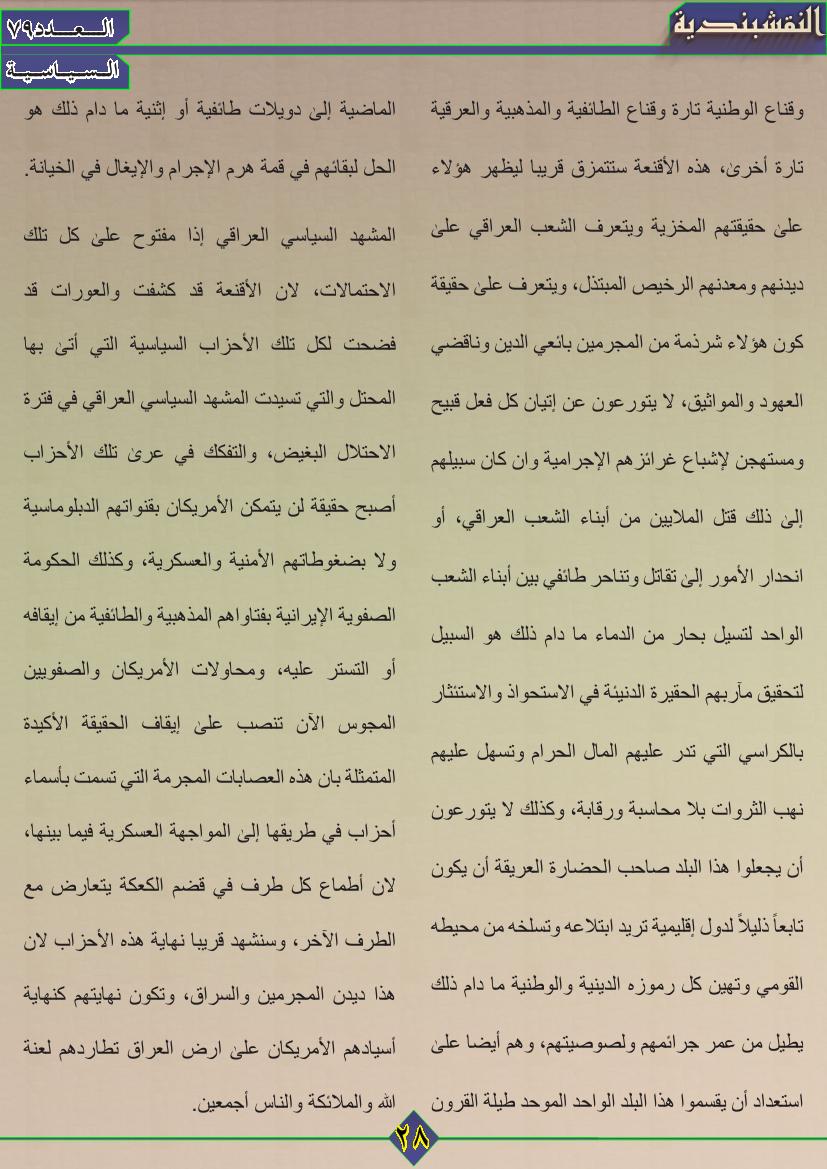 النقشبندية
العدد ٧٩
السياسية
وقناع الوطنية تارة وقناع الطائفية والمذهبية والعرقية
تارة أخرىٰ، هذه الأقنعة ستتمزق قريبا ليظهر هؤلاء
علىٰ حقيقتهم المخزية ويتعرف الشعب العراقي علىٰ
ديدنهم ومعدنهم الرخيص المبتذل، ويتعرف علىٰ حقيقة
كون هؤلاء شرذمة من المجرمين بائعي الدين وناقضي
العهود والمواثيق، لا يتورعون عن إتيان كل فعل قبيح
ومستهجن لإشباع غرائزهم الإجرامية وان كان سبيلهم
إلىٰ ذلك قتل الملايين من أبناء الشعب العراقي، أو
انحدار الأمور إلىٰ تقاتل وتناحر طائفي بين أبناء الشعب
الواحد لتسيل بحار من الدماء ما دام ذلك هو السبيل
لتحقيق مآربهم الحقيرة الدنيئة في الاستحواذ والاستئثار
بالكراسي التي تدر عليهم المال الحرام وتسهل عليهم
نهب الثروات بلا محاسبة ورقابة، وكذلك لا يتورعون
أن يجعلوا هذا البلد صاحب الحضارة العريقة أن يكون
تابعاً ذليلاً لدول إقليمية تريد ابتلاعه وتسلخه من محيطه
القومي وتهين كل رموزه الدينية والوطنية ما دام ذلك
يطيل من عمر جرائمهم ولصوصيتهم، وهم أيضا علىٰ
استعداد أن يقسموا هذا البلد الواحد الموحد طيلة القرون
الماضية إلىٰ دويلات طائفية أو إثنية ما دام ذلك هو
الحل لبقائهم في قمة هرم الإجرام والإيغال في الخيانة.
المشهد السياسي العراقي إذا مفتوح علىٰ كل تلك
الاحتمالات، لان الأقنعة قد كشفت والعورات قد
فضحت لكل تلك الأحزاب السياسية التي أتىٰ بها
المحتل والتي تسيدت المشهد السياسي العراقي في فترة
الاحتلال البغيض، والتفكك في عرىٰ تلك الأحزاب
أصبح حقيقة لن يتمكن الأمريكان بقنواتهم الدبلوماسية
ولا بضغوطاتهم الأمنية والعسكرية، وكذلك الحكومة
الصفوية الإيرانية بفتاواهم المذهبية والطائفية من إيقافه
أو التستر عليه، ومحاولات الأمريكان والصفويين
المجوس الآن تنصب علىٰ إيقاف الحقيقة الأكيدة
المتمثلة بان هذه العصابات المجرمة التي تسمت بأسماء
أحزاب في طريقها إلىٰ المواجهة العسكرية فيما بينها،
لان أطماع كل طرف في قضم الكعكة يتعارض مع
الطرف الآخر، وسنشهد قريبا نهاية هذه الأحزاب لان
هذا ديدن المجرمين والسراق، وتكون نهايتهم كنهاية
أسيادهم الأمريكان علىٰ ارض العراق تطاردهم لعنة
الله والملائكة والناس أجمعين.
٢٨